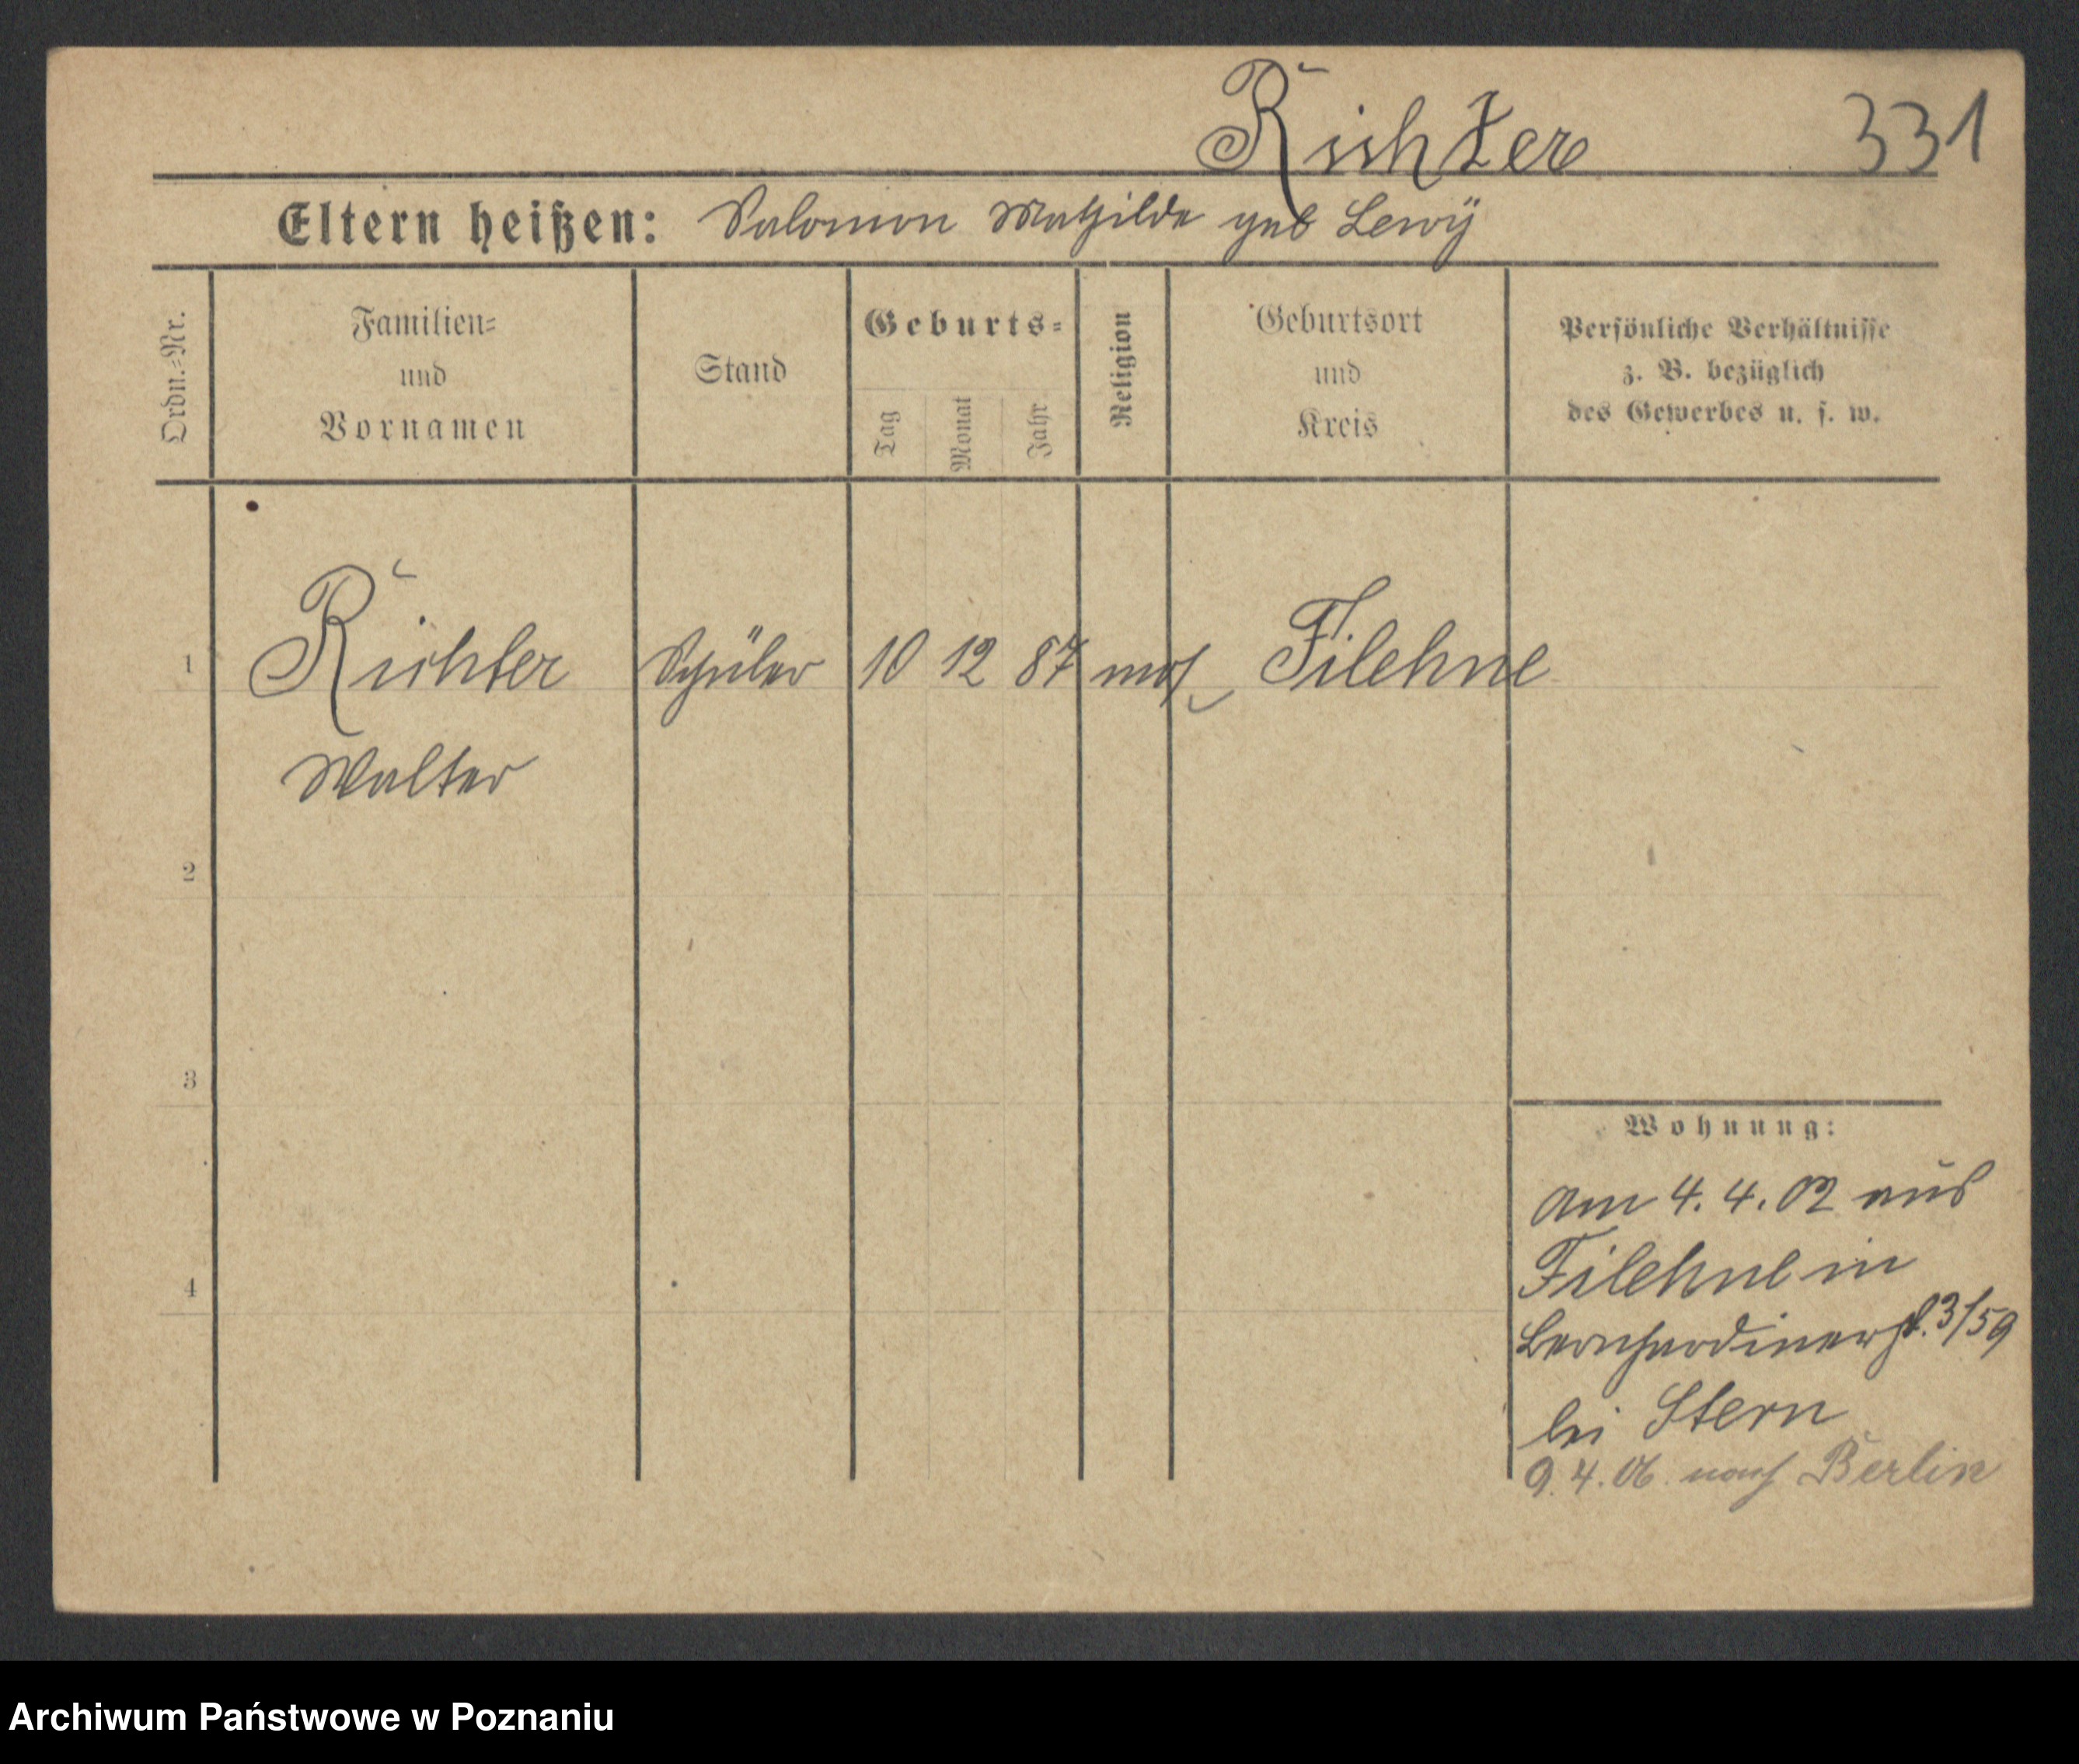 Richter 331
Eltern heißen: Salomon Mathilde geb Lewÿ
Ordn.=Nr.
Familien= und Vornamen
Stand
Geburts=
Tag Monat Jahr
Religion
Geburtsort und Kreis
Persönliche Verhältnisse
z. B. bezüglich
des Gewerbes u. s. w.
1 Richter Schüler 10 12 87 mos. Filehne
Walter
2
3
Wohnung:
am 4. 4. 02 aus
Filehne in
4
Bernhardinerpl. 3/59
bei Stern
9. 4. 06. nach Berlin
Archiwum Państwowe w Poznaniu